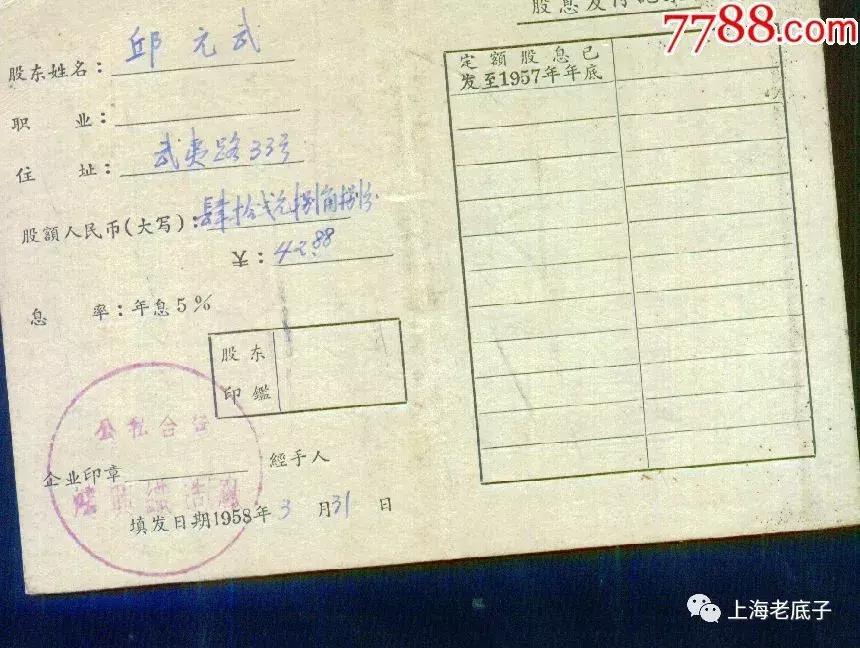 股息发付记录
7788.com
股东姓名：邱元武
职业：
住址：武夷路33号
股額人民币(大写)：肆拾弍元捌角捌分
￥：42.88
息率：年息5%
股东
印鑑
公私合营
企业印章
經手人
填发日期1958年3月31日
定額股息已
发至1957年年底
上海老底子